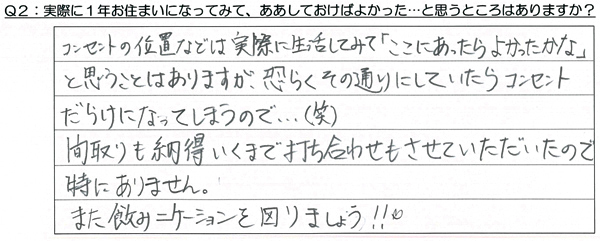 Q2：実際に１年お住まいになってみて、ああしておけばよかった…と思うところはありますか？
コンセントの位置などは実際に生活してみて「ここにあったらよかったかな」
と思うことはありますが、恐らくその通りにしていたらコンセント
だらけになってしまうので…(笑)
間取りも納得いくまで打ち合わせもさせていただいたので
特にありません。
また飲みニケーションを図りましょう!!